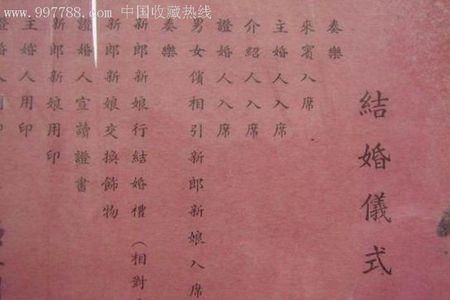 www.997788.com 中国收藏热线
結婚儀式
奏樂
來賓入席
主婚人入席
介紹人入席
證婚人入席
男女儐相引新郎新娘入席
奏樂
新郎新娘行結婚禮（相對
新郎新娘交換飾物
證婚人宣讀證書
新郎新娘用印
主婚人用印
人用印